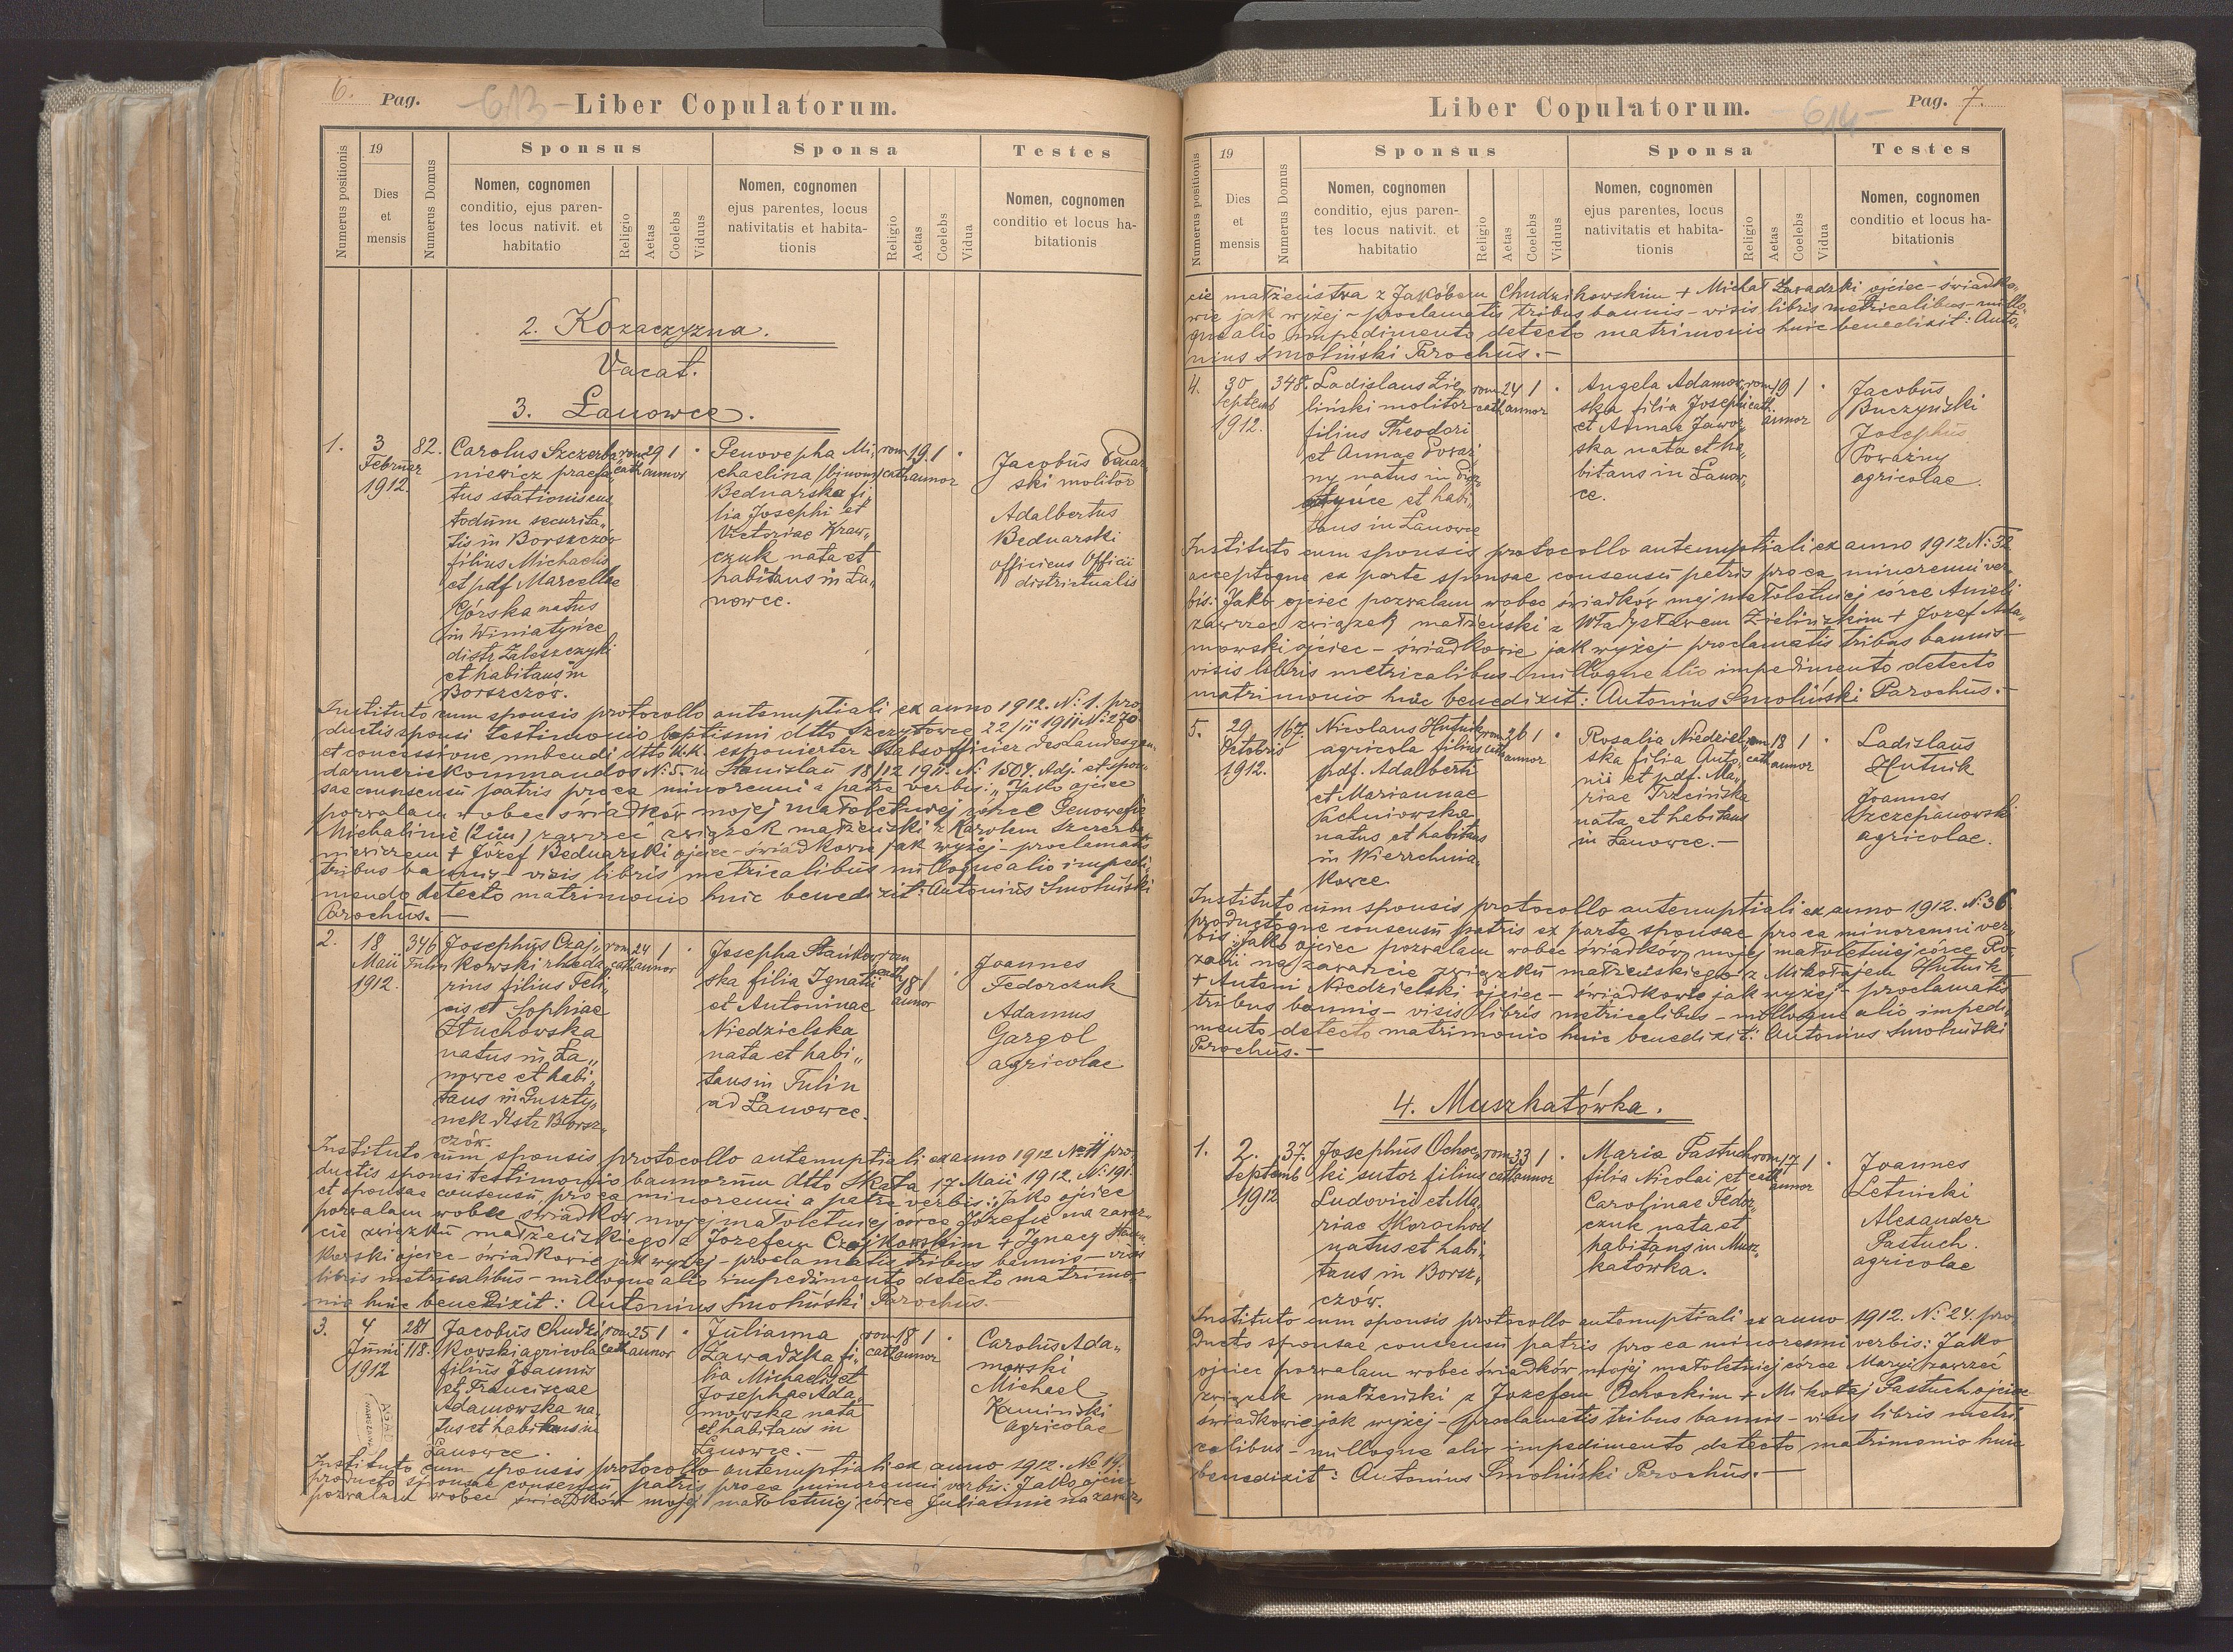 6. Pag. 613 Liber Copulatorum.
Numerus positionis
19
Dies
et
mensis
Numerus Domus
Sponsus
Nomen, cognomen
conditio, ejus paren-
tes locus nativit. et
habitatio
Religio
Aetas
Coelebs
Viduus
Sponsa
Nomen, cognomen
ejus parentes, locus
nativitatis et habita-
tionis
Religio
Aetas
Coelebs
Vidua
Testes
Nomen, cognomen
conditio et locus ha-
bitationis
2. Kozaczyzna.
Vacat.
3. Łanowce.
1.
3
Februar
1912.
82.
Carolus Szczerba„
niewicz praefec„
tus stationis cus„
todum securita„
tis in Borszczów
filius Michaelis
et pdf Marcellae
Górska natus
in Winiatyńce
distr Zaleszczyki
et habitans in
Borszczów.
rom
cath
29
annor
1
Genovepha Mi„
chaelina (binom)
Bednarska fi„
lia Josephi et
Victoriae Kraw„
czuk nata et
habitans in Ła„
nowce.
rom
cath
19
annor
1
Jacobus
ski molitor
Adalbertus
Bednarski
officieus Officii
districtualis
Instituto cum sponsis protocollo antenuptiali ex anno 1912. N: 1. pro„
ductis sponsi testimonio baptismi dtto Szczytowce 22/11 1911 N: 270
et concessione nubendi dtto k.k. exponierter Stabsofficier des Landesgen„
darmeriekommandos N: 5. in Stanislau 18/12 1911. N: 1504. Adj. et spon„
sae consensu patris pro ea minorenni a patre verbis: „Jako ojciec
pozwalam wobec świadków mojej małoletniej córce Genowefie
Michalinie (2im) zawrzeć związek małżeński z Karolem Szczerba„
niewiczem + Józef Bednarski ojciec - świadkowie jak wyżej - proclamatis
tribus bannis - visis libris metricalibus nulloque alio impedi„
mento detecto matrimonio huic benedixit: Antonius Smoliński
Parochus. -
2.
18
Maii
1912.
346
Tulin
Josephus Czaj„
kowski rheda„
rius filius Feli„
cis et Sophiae
Złuchowska
natus in Ła„
nowce et habi„
tans in Puszty„
nek distr Borsz„
czów.
rom
cath
24
annor
1
Josepha Stankow
ska filia Ignatii
et Antoninae
Niedzielska
nata et habi„
tans in Tulin
ad Łanowce.
rom
cath
18
annor
1
Joannes
Fedorczuk
Adamus
Gargol
agricolae
Instituto cum sponsis protocollo antenuptiali ex anno 1912 No 11 pro„
ductis sponsi testimonio bannorum dtto Skała 17 Maii 1912. N: 191.
et sponsae consensu pro ea minorenni a patre verbis: „Jako ojciec
pozwalam wobec świadków mojej małoletniej córce Józefie na zawar„
cie związku małżeńskiego z Józefem Czajkowskim + Ignacy Stan„
kowski ojciec - świadkowie jak wyżej - proclamatis tribus bannis - visis
libris metricalibus - nulloque alio impedimento detecto matrimo„
nio huic benedixit: Antonius Smoliński Parochus. -
3.
4
Junii
1912
281
118.
Jacobus Chudzi„
kowski agricola
filius Joannis
et Franciscae
Adamowska na
tus et habitans in
Łanowce.
rom
cath
25
annor
1
Julianna
Zawadzka fi„
lia Michaelis et
Josephae Ada„
mowska nata
et habitans in
Łanowce. -
rom
cath
18
annor
1
Carolus Ada„
mowski
Michael
Kamiński
agricolae
Instituto cum sponsis protocollo antenuptiali ex anno 1912. No 19.
producto sponsae consensu patris pro ea minorenni verbis: Jako ojciec
pozwalam wobec świadków mojej małoletniej córce Juliannie na zawar„
Liber Copulatorum. 614 Pag. 7.
Numerus positionis
19
Dies
et
mensis
Numerus Domus
Sponsus
Nomen, cognomen
conditio, ejus paren-
tes locus nativit. et
habitatio
Religio
Aetas
Coelebs
Viduus
Sponsa
Nomen, cognomen
ejus parentes, locus
nativitatis et habita-
tionis
Religio
Aetas
Coelebs
Vidua
Testes
Nomen, cognomen
conditio et locus ha-
bitationis
cie małżeństwa z Jakóbem Chudzikowskim + Michał Zawadzki ojciec - świadko„
wie jak wyżej - proclamatis tribus bannis - visis libris metricalibus - nullo„
que alio impedimento detecto matrimonio huic benedixit: Anto„
nius Smoliński Parochus. -
4.
30
Septemb
1912.
348.
Ladislaus Zie„
liński molitor
filius Theodori
et Annae Poważ„
ny natus in
et habi„
tans in Łanowce
rom
cath
24
annor
1
Angela Adamow„
ska filia Josephi
et Annae Jawor„
ska nata et ha„
bitans in Łanow„
ce.
rom
cath.
19
annor
1
Jacobus
Buczyński
Josephus
Poważny
agricolae.
Instituto cum sponsis protocollo antenuptiali ex anno 1912 N: 32
acceptoque ex parte sponsae consensu patris pro ea minorenni ver„
bis: Jako ojciec pozwalam wobec świadków mej małoletniej córce Anieli
zawrzeć związek małżeński z Władysławem Zielińskim + Józef Ada„
mowski ojciec - świadkowie jak wyżej - proclamatis tribus bannis -
visis libris metricalibus - nulloque alio impedimento detecto
matrimonio huic benedixit: Antonius Smoliński Parochus. -
5.
29
Octobris
1912.
167.
Nicolaus Hutnik
agricola filius
pdf. Adalberti
et Mariannae
Pachniowska
natus et habitans
in Wierzchnia„
kowce
rom
cath
26
annor
1
Rosalia Niedziel„
ska filia Anto„
nii et pdf. Ma„
riae Trzcińska
nata et habitans
in Łanowce. -
rom
cath
18
annor
1
Ladislaus
Hutnik
Joannes
Szczepanowski
agricolae.
Instituto cum sponsis protocollo antenuptiali ex anno 1912. N: 36
productoque consensu patris ex parte sponsae pro ea minorenni ver„
bis: „Jako ojciec pozwalam wobec świadków mojej małoletniej córce Ro„
zalii na zawarcie związku małżeńskiego z Mikołajem Hutnik
+ Antoni Niedzielski ojciec - świadkowie jak wyżej - proclamatis
tribus bannis - visis libris metricalibus - nulloque alio impedi„
mento detecto matrimonio huic benedixit: Antonius Smoliński
Parochus. -
4. Muszkatówka.
1.
2.
Septemb
1912
37.
Josephus Ochoc„
ki sutor filius
Ludovici et Ma„
riae Skorochod
natus et habi„
tans in Borsz„
czów.
rom
cath
33
annor
1
Maria Pastuch
filia Nicolai et
Carolinae Fedor„
czuk nata et
habitans in Musz„
katówka.
rom
cath
17
annor
1
Joannes
Letnicki
Alexander
Pastuch.
agricolae
Instituto cum sponsis protocollo antenuptiali ex anno 1912. N: 24. pro„
ducto sponsae consensu patris pro ea minorenni verbis: Jako
ojciec pozwalam wobec świadków mojej małoletniej córce Maryi zawrzeć
związek małżeński z Józefem Ochockim + Mikołaj Pastuch ojciec
świadkowie jak wyżej - proclamatis tribus bannis - visis libris metri„
calibus - nulloque alio impedimento detecto matrimonio huic
benedixit: Antonius Smoliński Parochus. -